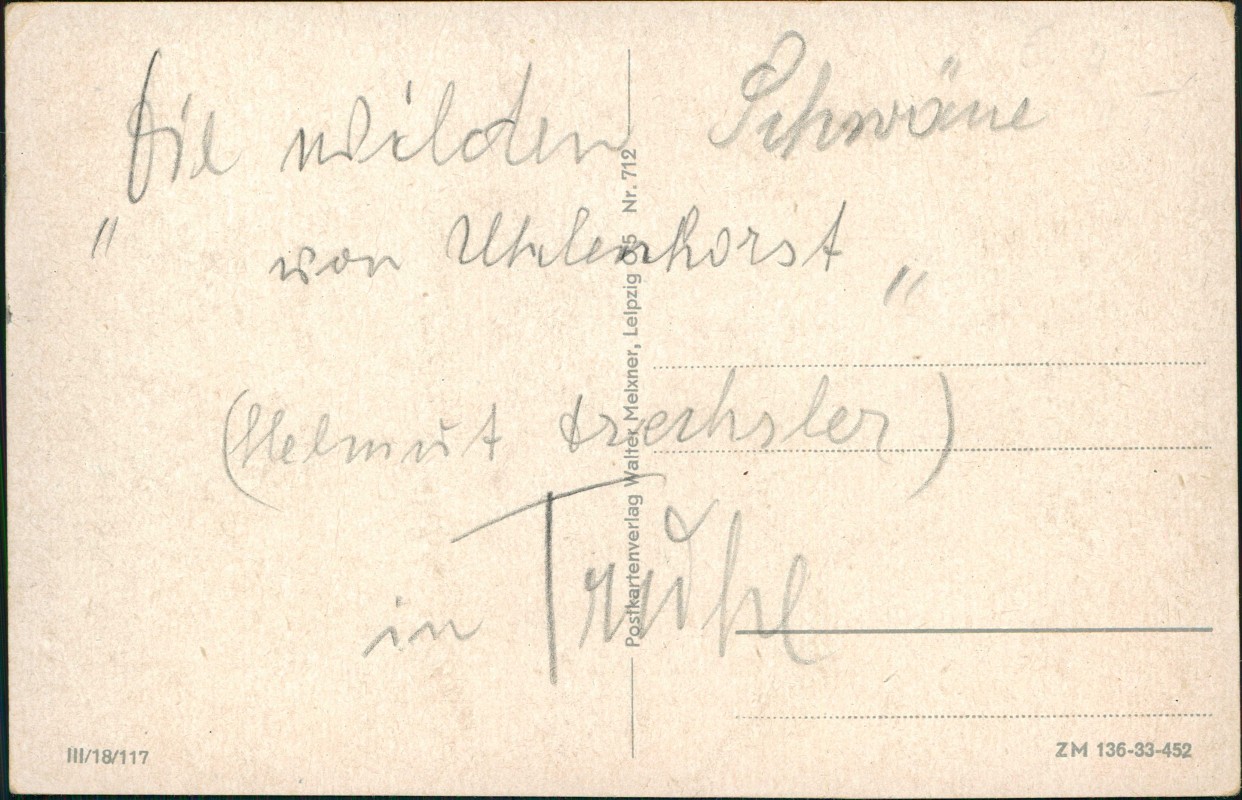 Die wilden Schwäne
" von Uhlenhorst "
(Helmut Drechsler)
in
Postkartenverlag Walter Meixner, Leipzig O 5 Nr. 712
III/18/117
ZM 136-33-452